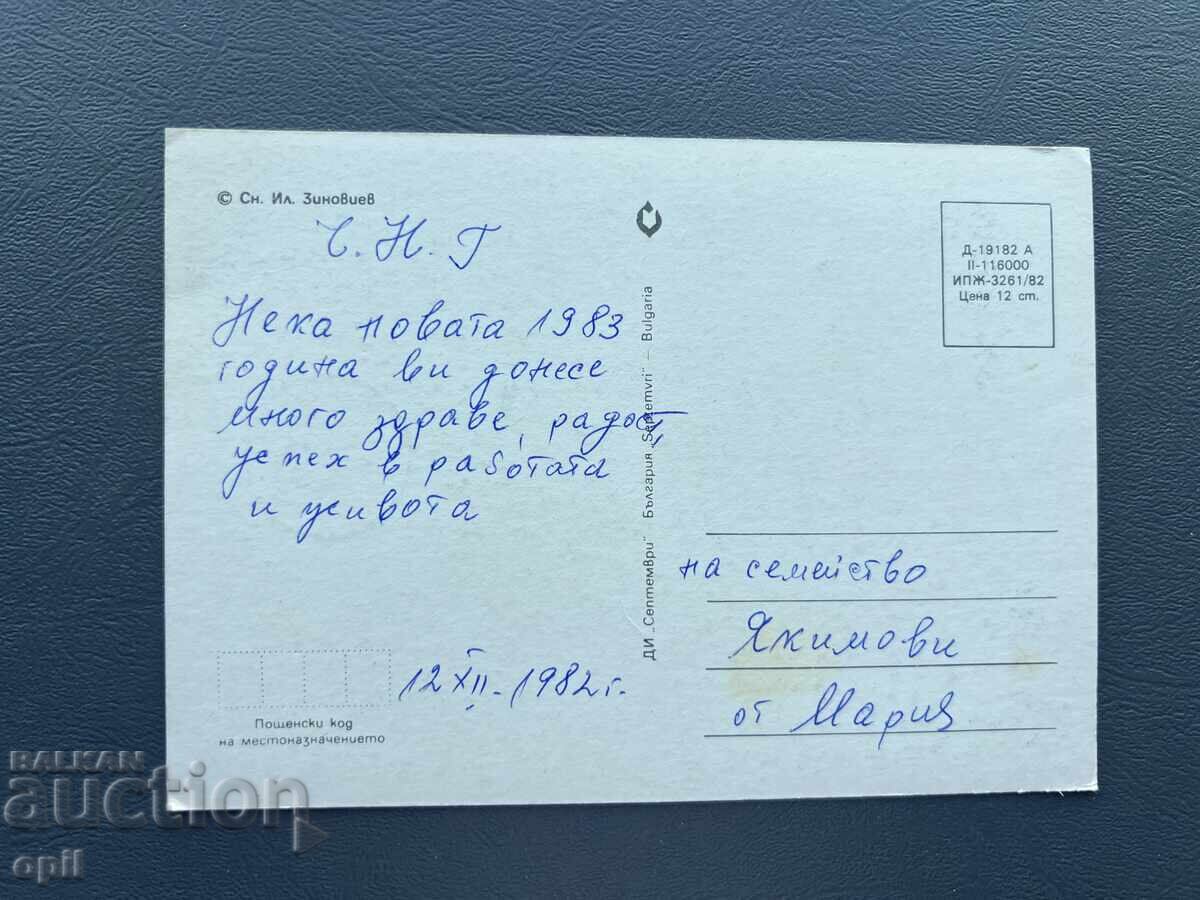 © Сн. Ил. Зиновиев
Ч. Н. Г
Нека новата 1983
година ви донесе
много здраве, радост,
успех в работата
и живота
12 XII. 1982 г.
Пощенски код
на местоназначението
ДИ „Септември" България „Septemvri" – Bulgaria
Д-19182 А
II-116000
ИПЖ-3261/82
Цена 12 ст.
на семейство
Якимови
от Мария
BALKAN
auction
opil